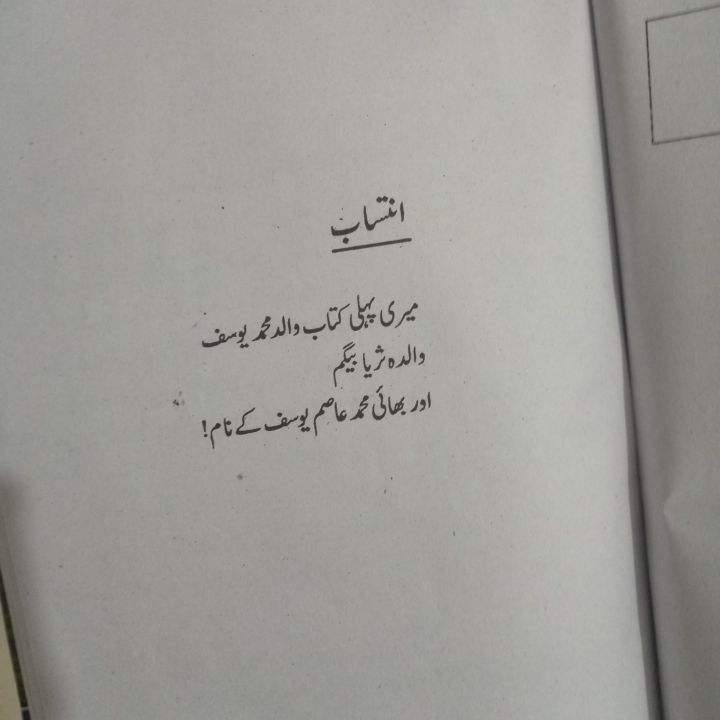 انتساب
میری پہلی کتاب والد محمد یوسف
والدہ ثریا بیگم
اور بھائی محمد عاصم یوسف کے نام!